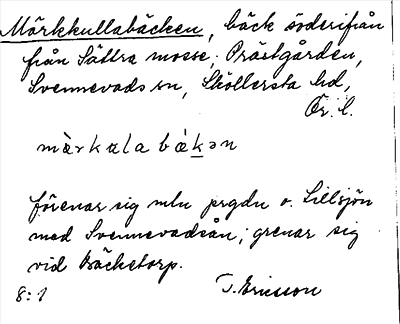 Märkkullabäcken, bäck söderifrån
från Sättra mosse, Prästgården,
Svennevads sn, Sköllersta hd,
Ör. l.
màrkala bàkən
förenar sig mln prgdn o. Lillsjön
med Svennevadsån; grenar sig
vid Bäcketorp.
8:1 T. Ericsson